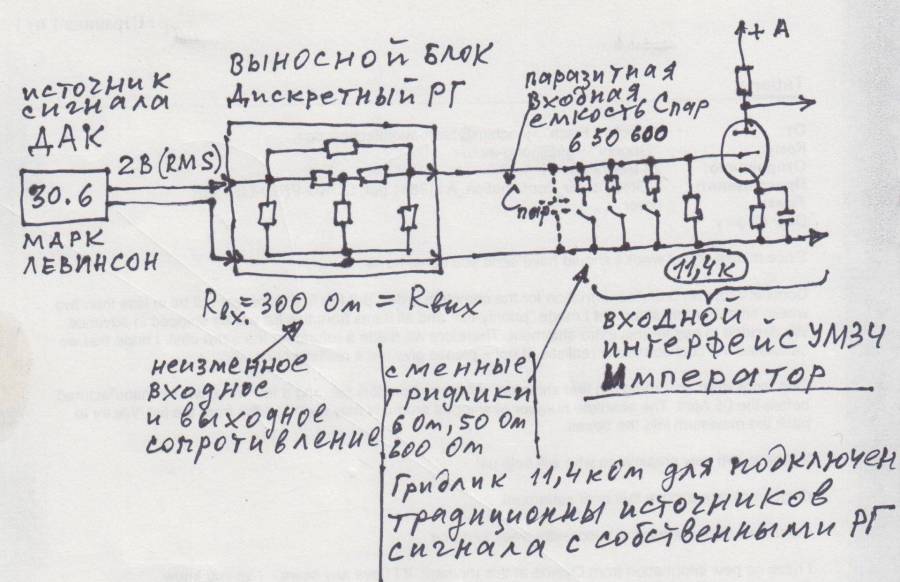 источник
сигнала
ДАК
30.6
МАРК
ЛЕВИНСОН
2В (RMS)
ВЫНОСНОЙ БЛОК
Дискретный РГ
Rвх. = 300 Ом = Rвых
неизменное
входное
и выходное
сопротивление
паразитная
входная
емкость Спар
6 50 600
Спар
+ А
11,4к
входной
интерфейс УМЗЧ
Император
сменные
гридлики
6 Ом, 50 Ом
600 Ом
Гридлик 11,4 кОм для подключен
традиционны источников
сигнала с собственными РГ